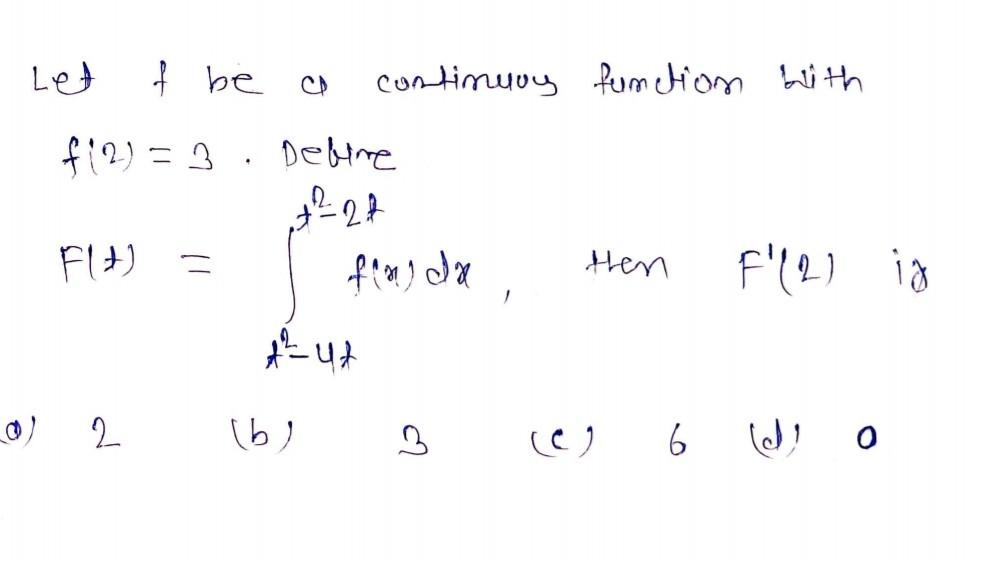 Let f be a continuous function with
f(2) = 3 . Define
t²-2t
F(t) = ∫ f(x) dx , then F'(2) is
t²-4t
(a) 2 (b) 3 (c) 6 (d) 0